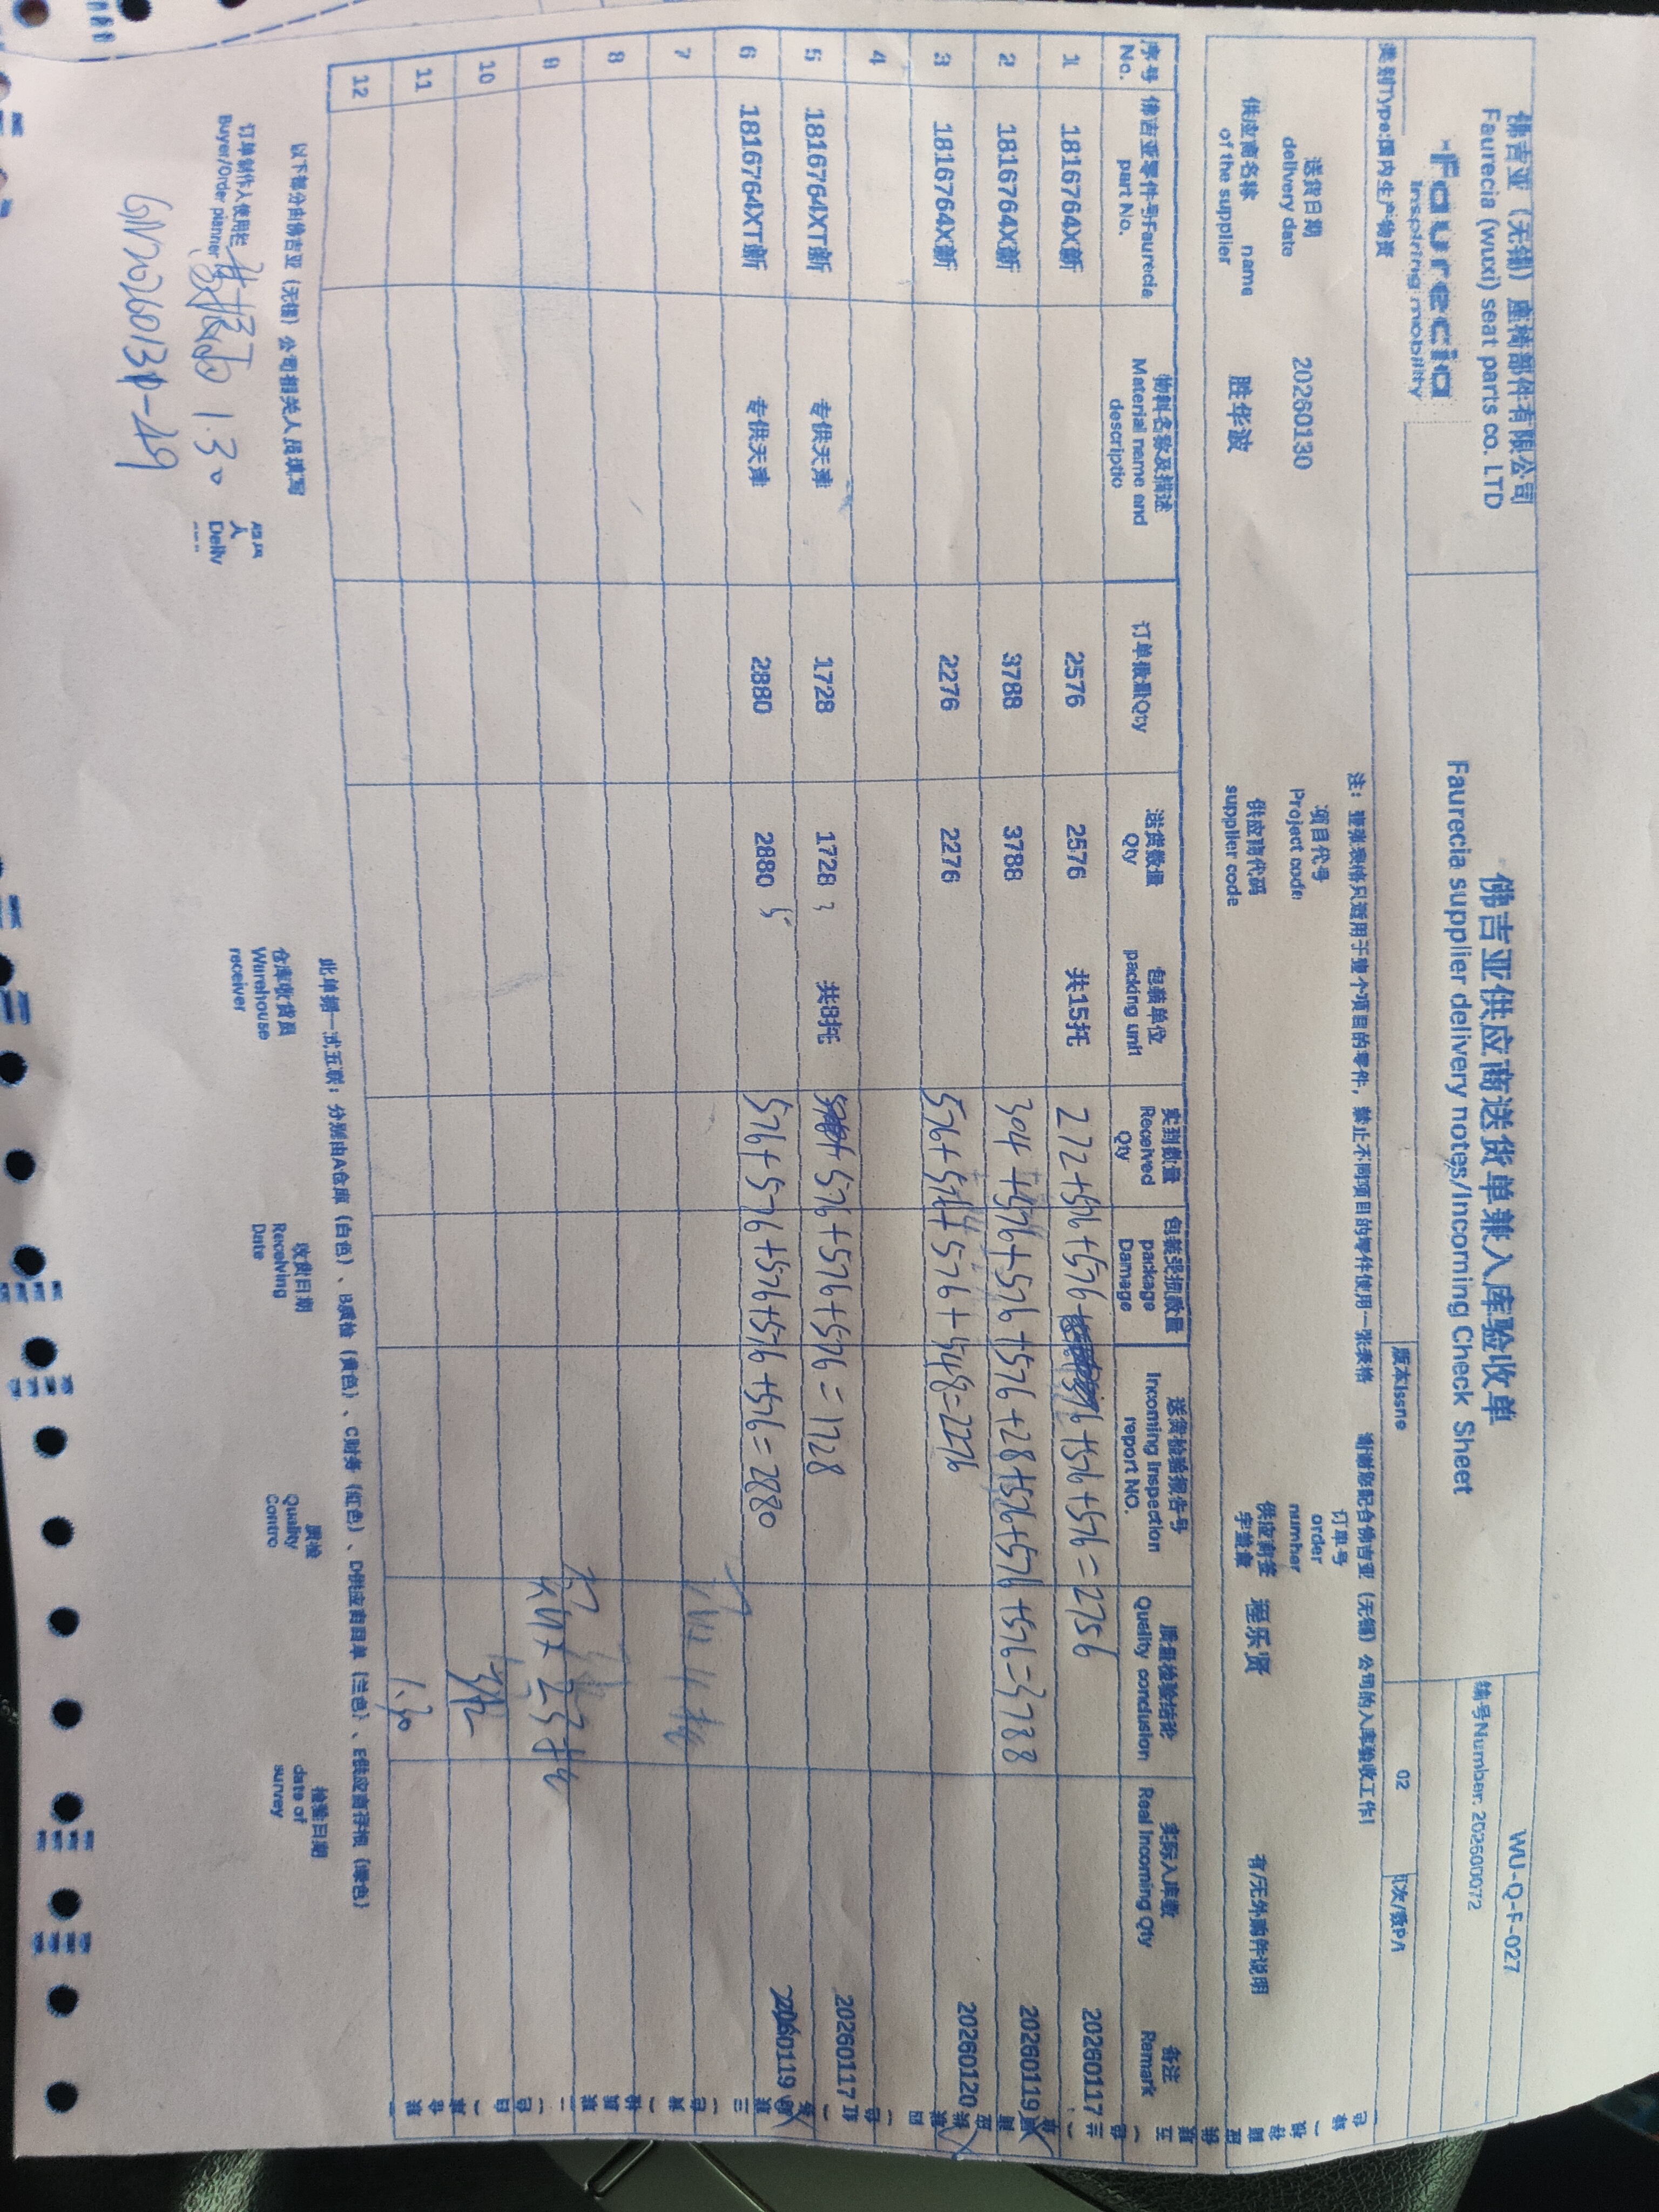 佛吉亚（无锡）座椅部件有限公司
Faurecia (wuxi) seat parts co. LTD
faurecia
inspiring mobility
佛吉亚供应商送货单兼入库验收单
Faurecia supplier delivery notes/Incoming Check Sheet
WU-Q-F-027
编号Number: 202600072
类别Type:国内生产物资
版本Issne
02
页次/数P/\
注：每张表格只适用于壹个项目的零件，禁止不同项目的零件使用一张表格 谢谢您配合佛吉亚（无锡）公司的入库验收工作!
送货日期
delivery date
20260130
项目代号
Project code
订单号
order
number
供应商名称 name
of the supplier
胜华波
供应商代码
supplier code
供应商签
字盖章
程乐贤
有/无外购件说明
序号
No.
佛吉亚零件号Faurecia
part No.
物料名称及描述
Material name and
descriptio
订单数量Qty
送货数量
Qty
包装单位
packing unit
实到数量
Received
Qty
包装受损数量
package
Damage
送货检验报告号
Incoming Inspection
report NO.
质量检验结论
Quality conclusion
实际入库数
Real Incoming Qty
备注
Remark
1 1816764X新 2576 2576 共15托 272+576+576+ 576+576+576=2756 20260117
2 1816764X新 3788 3788 304+576+576+576+28+576+576+576=3788 20260119
3 1816764X新 2276 2276 576+576+576+548=2276 20260120
4
5 1816764XT新 专供天津 1728 1728 3 共8托 576+576+576=1728 20260117
6 1816764XT新 专供天津 2880 2880 5 576+576+576+576+576=2880 20260119
7
8
9
10
11 1.30
12
以下部分由佛吉亚（无锡）公司相关人员填写
此单据一式五联：分别由A仓库（白色）、B质检（黄色）、C财务（红色）、D供应商回单（兰色）、E供应商存根（绿色）
订单制作人使用栏
Buyer/Order planner
1.30
人
Deliv
仓库收货员
Warehouse
receiver
收货日期
Receiving
Date
质检
Quality
Contro
检验日期
date of
survey